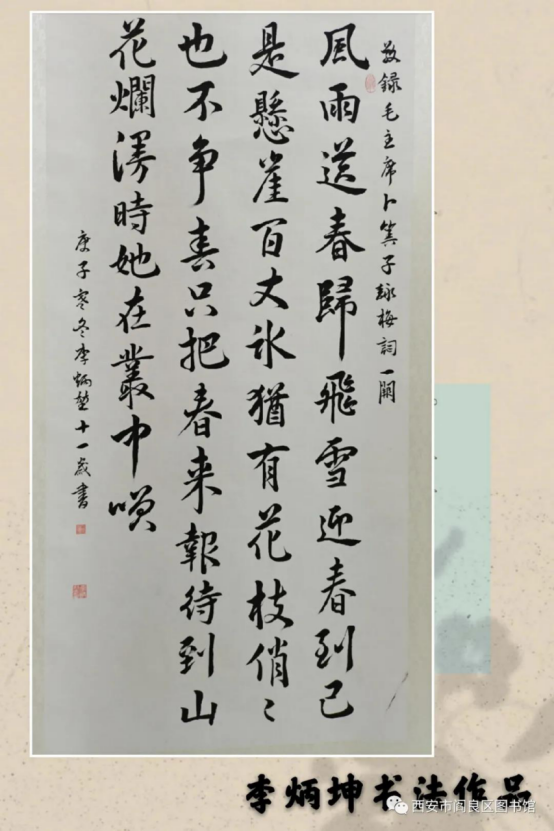 敬録毛主席卜筭子詠梅詞一闋
風雨送春歸飛雪迎春到已
是懸崖百丈冰猶有花枝俏〻
也不争春只把春来報待到山
花爛漫時她在叢中咲
庚子寒冬李炳堃十一歲書
李炳坤书法作品
西安市阎良区图书馆